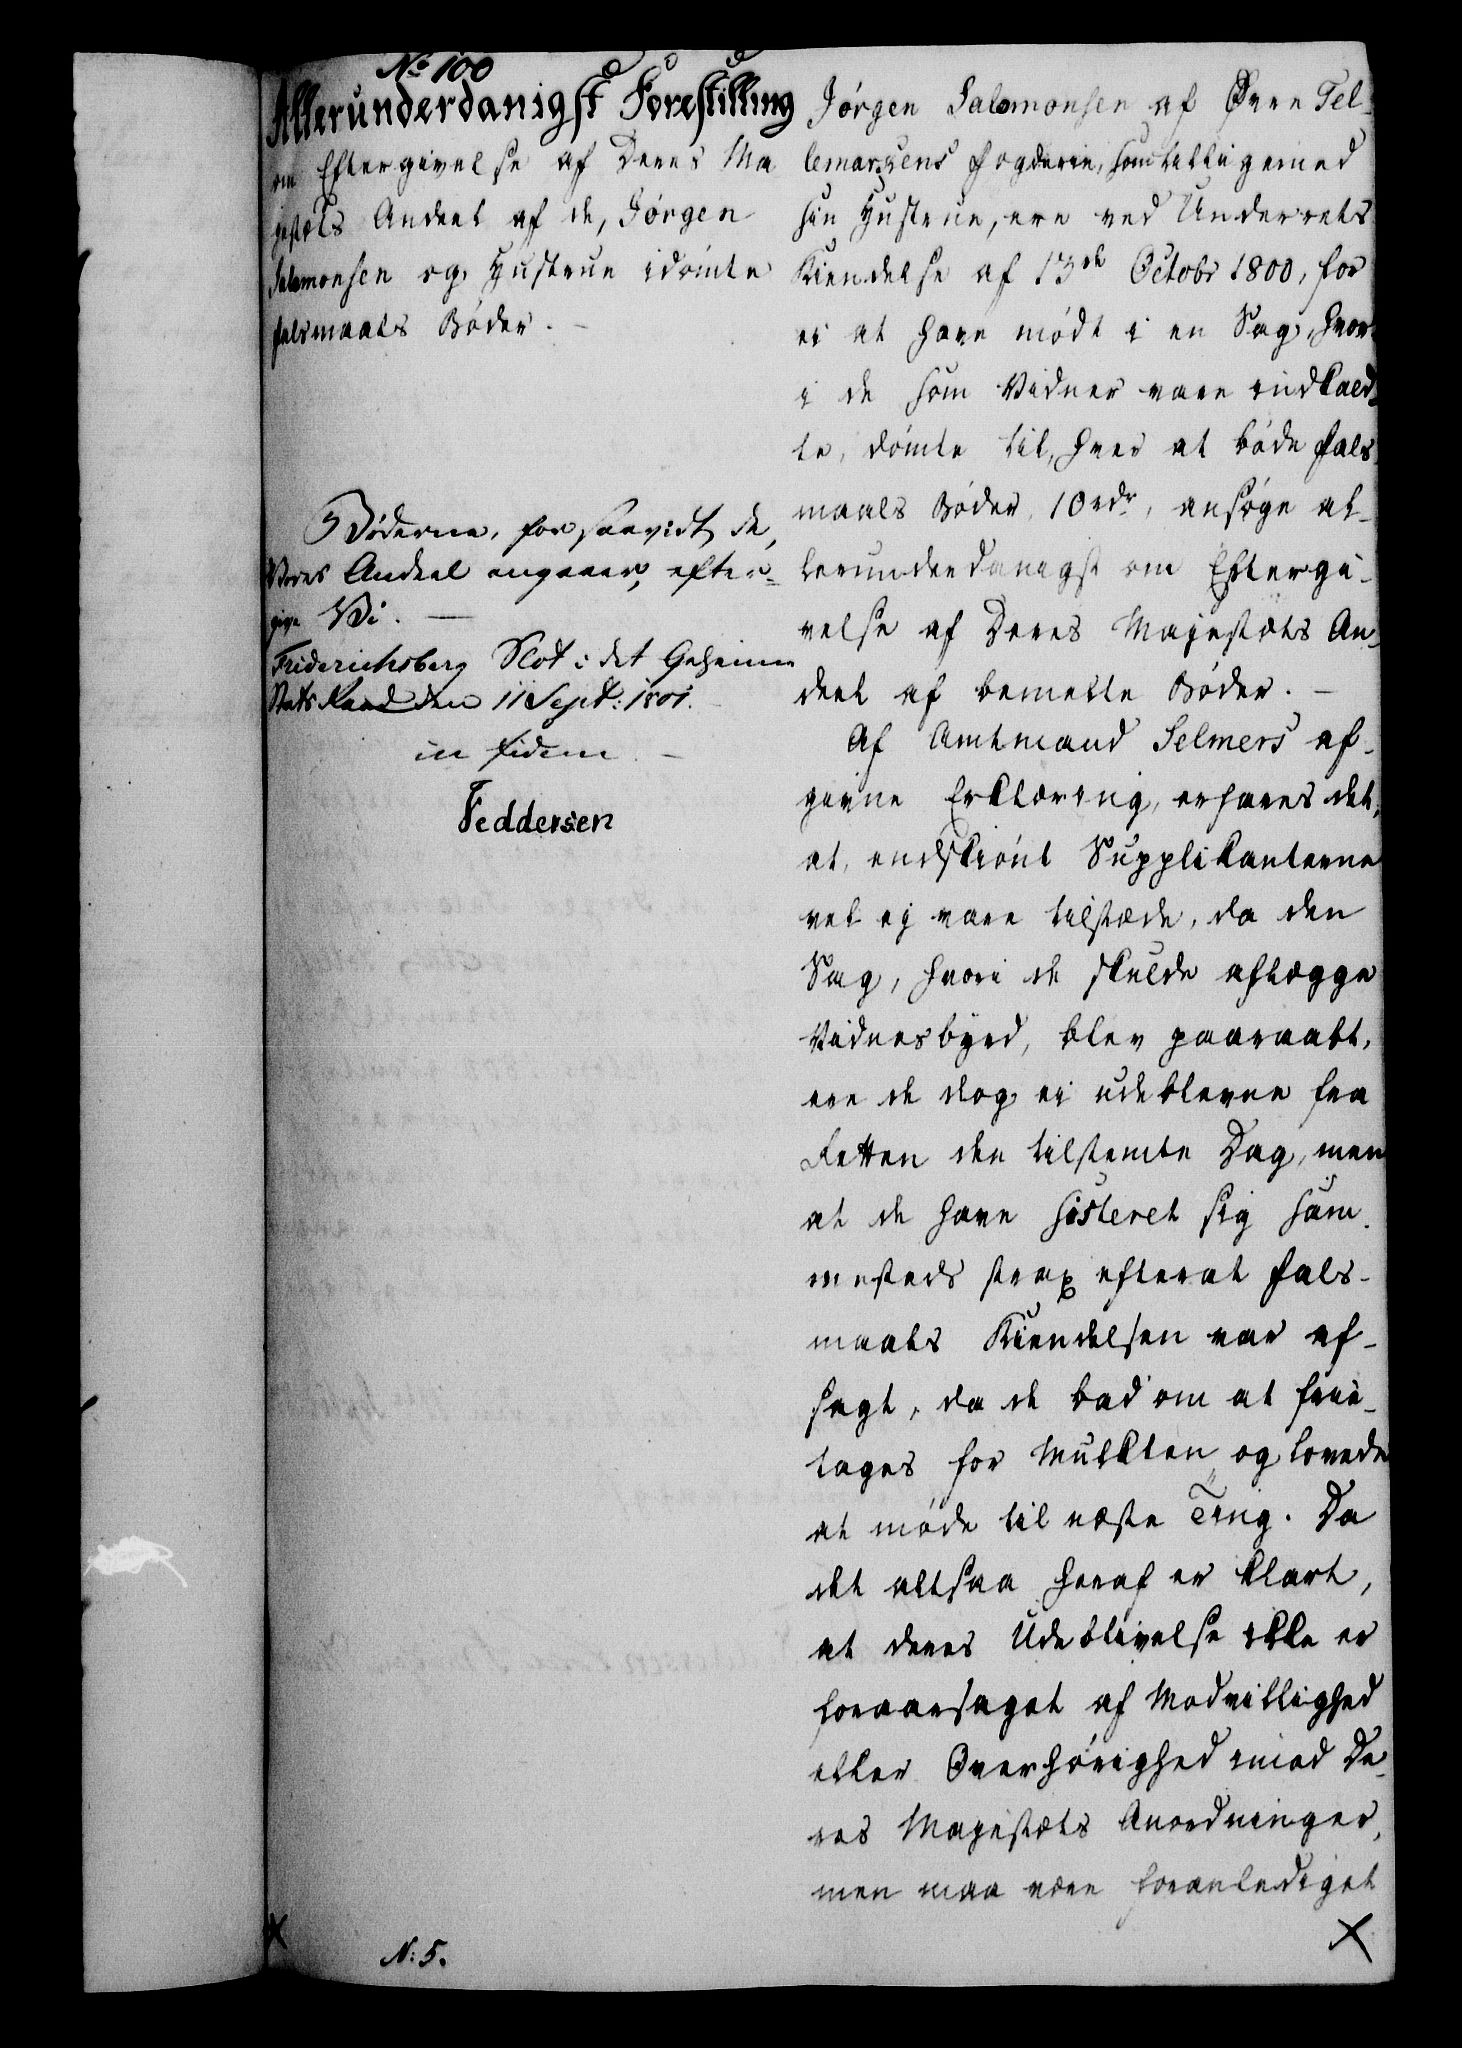 No 100
Allerunderdanigst Forestilling
om Eftergivelse af Deres Ma
gestæts Andeel af de, Jørgen
Salomonsen og Hustrue idömte
falsmaals Böder. -
Böderne, forsaavidt de,
Vores Andeel angaaer, efter-
give Vi. -
Friderichsberg Slot i det Geheime
Stats Raad den 11 Sept: 1801.
in fidem. -
Feddersen
Jørgen Salomonsen af Øvre Tel-
lemarkens Fogderie, som tilligemed
sin Hustrue, ere ved Underrets
Kiendelse af 13de Octobr 1800, for
ei at have mødt i en Sag, hvor-
i de som Vidner vare indkald-
te, dömte til, hver at bøde fals-
maals Bøder 10 rdr, ansøge al-
lerunderdanigst om Eftergi-
velse af Deres Majestæts An-
deel af bemelte Bøder. -
Af Amtmand Selmers af-
givne Erklæring, erfares det,
at, endskiönt Supplikanterne
vel ej vare tilstæde, da den
Sag, hvori de skulde aflægge
Vidnesbyrd, blev paaraabt,
ere de dog ei udeblevne fra
Retten den tilstemte Dag, men
at de have sisteret sig sam-
mesteds strax efterat fals-
maals Kiendelsen var af-
sagt, da de bad om at frii-
tages for Mulkten og lovede
at møde til næste Ting. Da
det altsaa heraf er klart,
at deres Udeblivelse ikke er
foraarsaget af Modvillighed
eller Overhørighed imod De-
res Majestæts Anordninger,
men maa være foranlediget
N: 5.